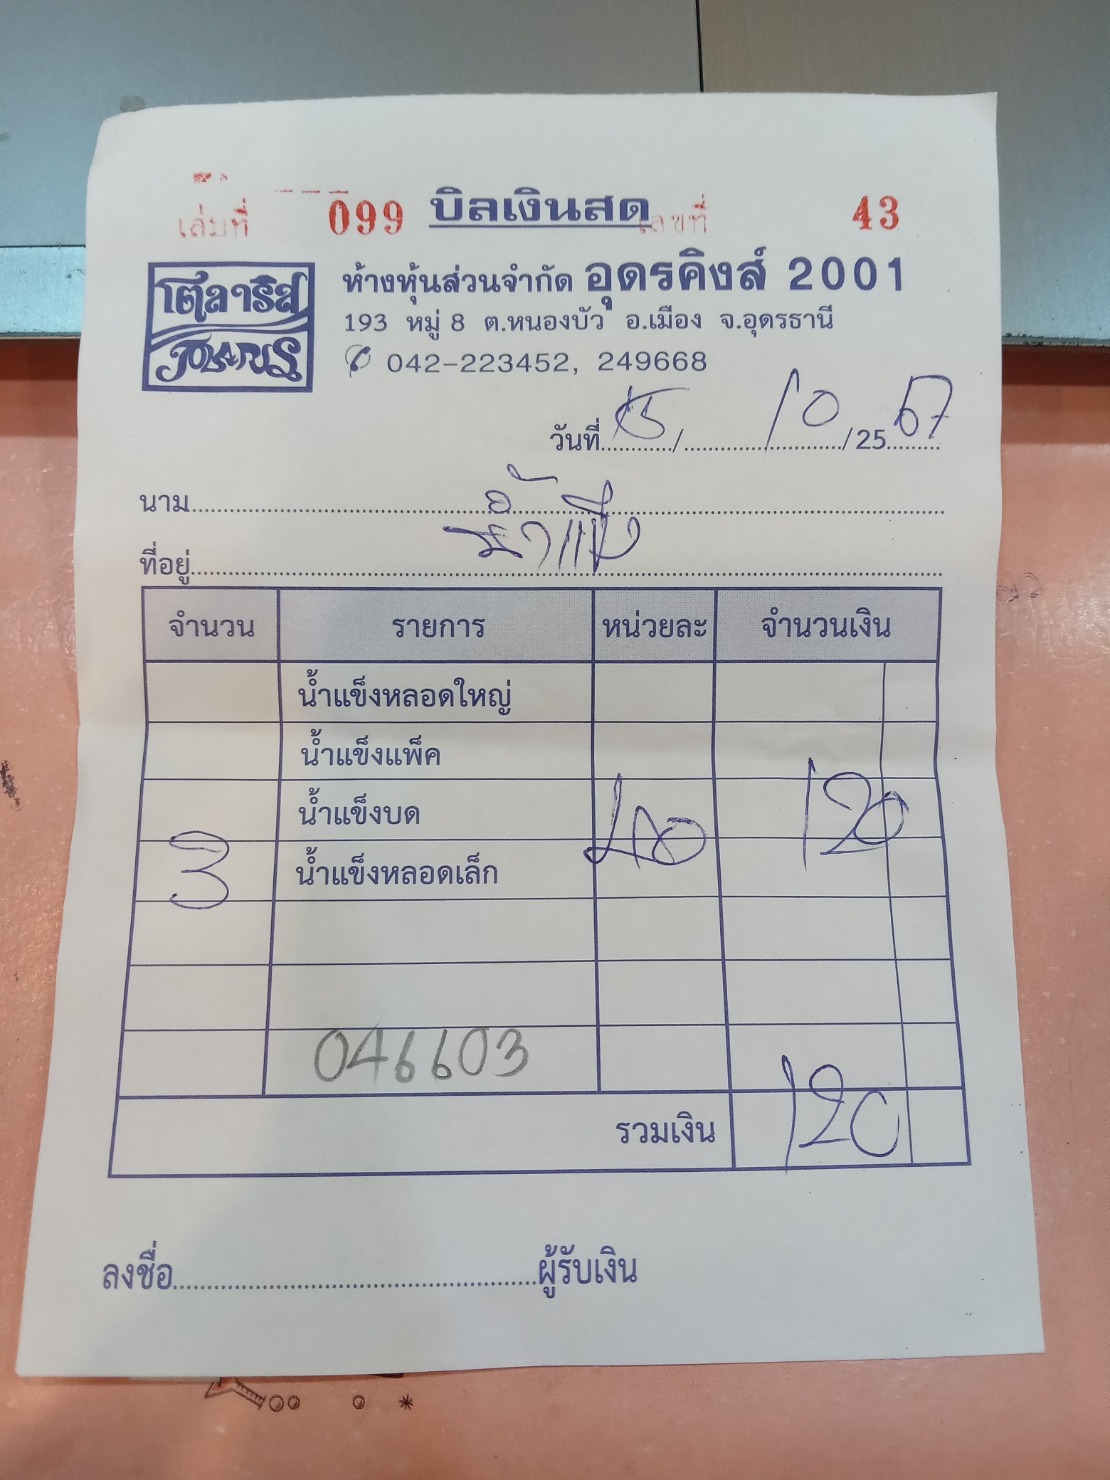 เล่มที่ 099 บิลเงินสด เลขที่ 43
โพลาริส
POLARIS
ห้างหุ้นส่วนจำกัด อุดรคิงส์ 2001
193 หมู่ 8 ต.หนองบัว อ.เมือง จ.อุดรธานี
042-223452, 249668
วันที่ 15 / 10 / 25 67
นาม
น้ำแข็ง
ที่อยู่
จำนวน รายการ หน่วยละ จำนวนเงิน
น้ำแข็งหลอดใหญ่
น้ำแข็งแพ็ค
น้ำแข็งบด
3 น้ำแข็งหลอดเล็ก 40 120
046603
รวมเงิน 120
ลงชื่อ ผู้รับเงิน